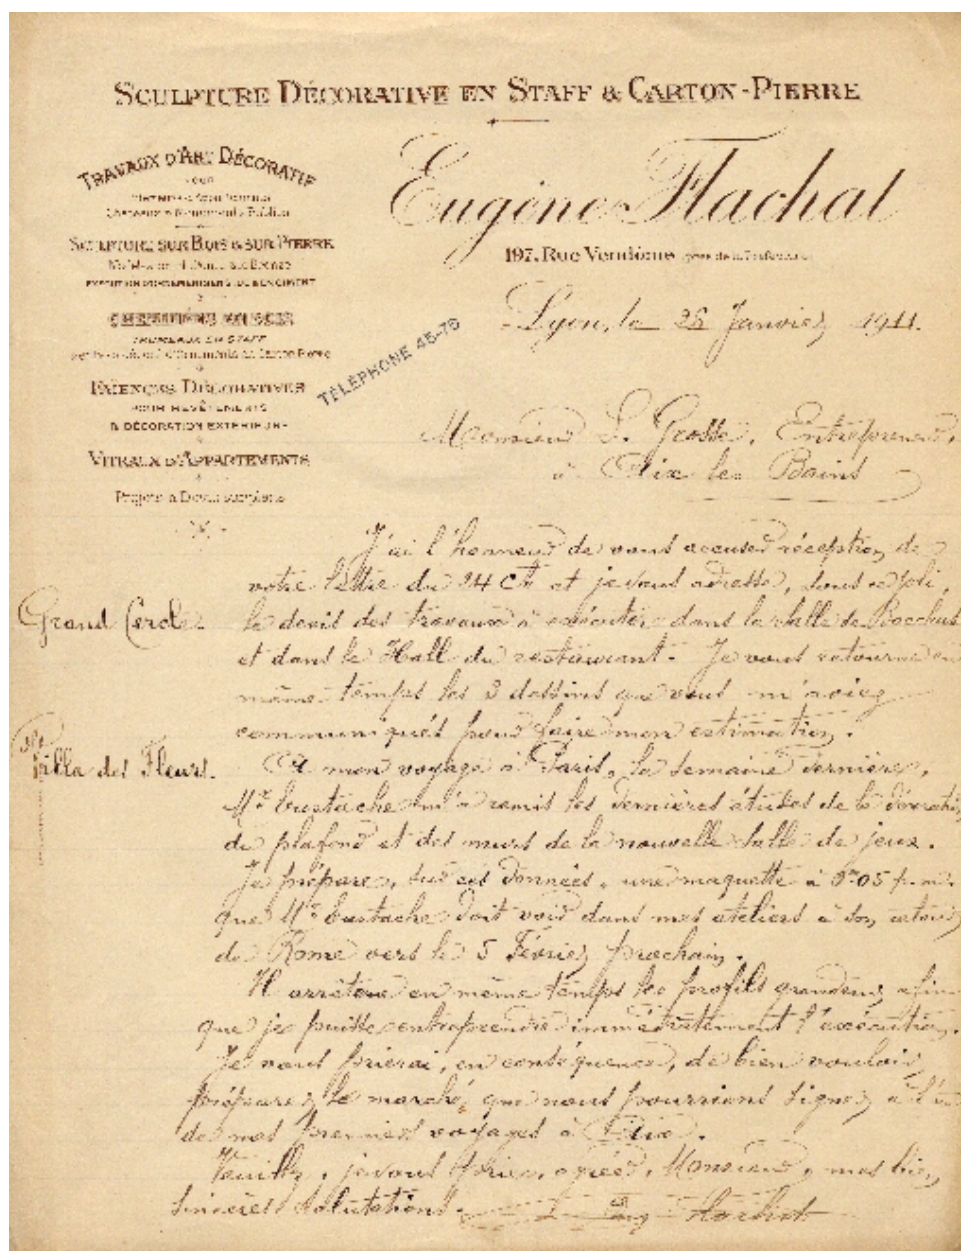 SCULPTURE DÉCORATIVE EN STAFF & CARTON-PIERRE
TRAVAUX D'ART DÉCORATIF
POUR
Châteaux & Monuments Publics
SCULPTURE SUR BOIS & SUR PIERRE
CHEMINÉES EN BOIS
TRUMEAUX EN STAFF
FAÏENCES DÉCORATIVES
POUR REVÊTEMENTS
& DÉCORATION EXTÉRIEURE
VITRAUX D'APPARTEMENTS
Projets & Devis sur plans
TÉLÉPHONE 45-76
Eugène Flachat
197, Rue Vendôme (près de la Préfecture)
Lyon, le 26 Janvier 1911.
Monsieur L. Grosse, Entrepreneur,
à Aix les Bains
J'ai l'honneur de vous accuser réception de
votre lettre du 24 Ct et je vous adresse, sous ce pli,
Grand Cercle. le devis des travaux à exécuter dans la salle de Bacchus
et dans le Hall du restaurant. Je vous retourne en
même temps les 3 dessins que vous m'aviez
communiqués pour faire mon estimation.
Villa des Fleurs. A mon voyage à Paris, la semaine dernière,
Mr Eustache m'a remis les dernières études de la décoration
du plafond et des murs de la nouvelle salle de jeux.
Je prépare, sur ces données, une maquette à 0m05 p. m.
que Mr Eustache doit voir dans mes ateliers à son retour
de Rome vers le 5 Février prochain.
Il arrêtera en même temps les profils grandeur, afin
que je puisse entreprendre immédiatement l'exécution.
Je vous prierai, en conséquence, de bien vouloir
préparer le marché, que nous pourrions signer à l'un
de mes premiers voyages à Aix.
Veuillez, je vous prie, agréer, Monsieur, mes bien
sincères salutations. Eug Flachat